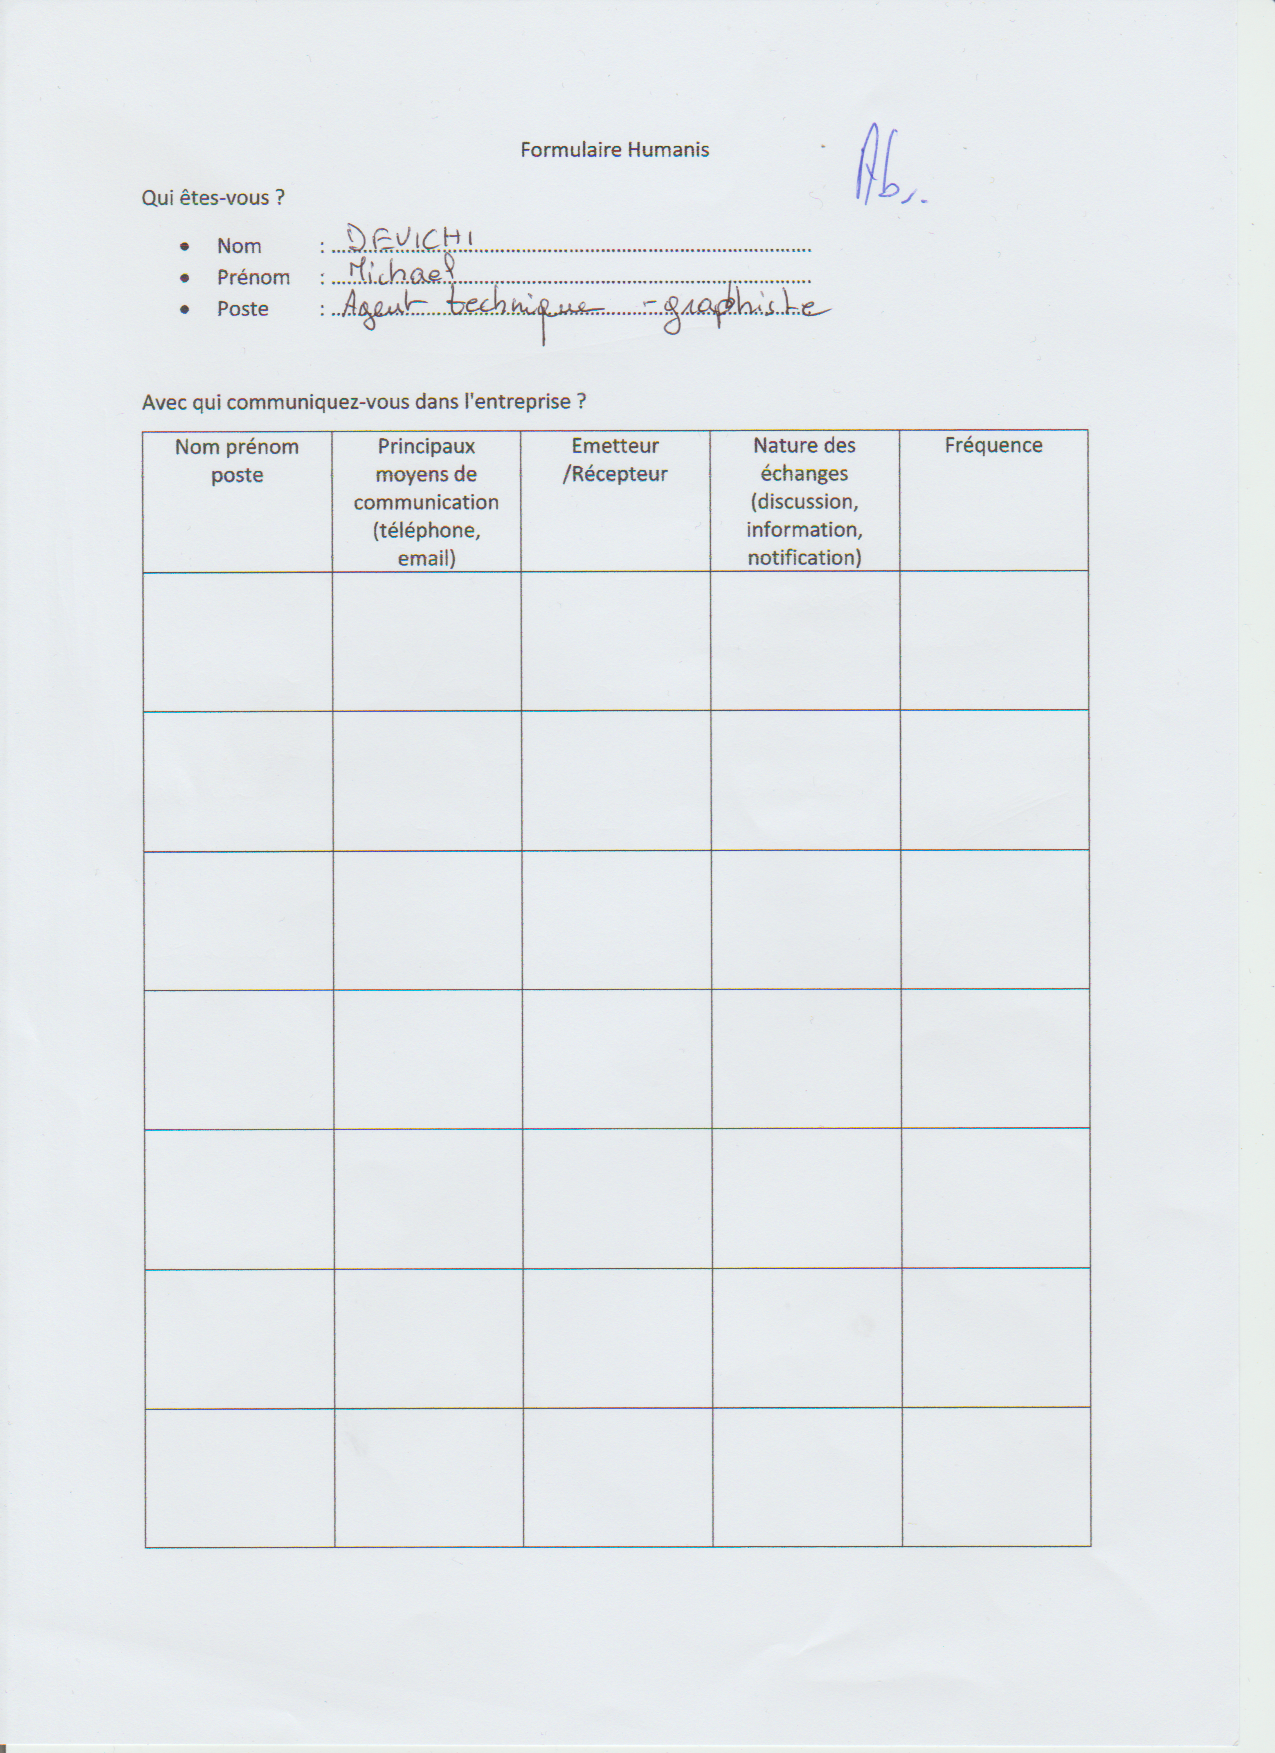 Formulaire Humanis
Ab.
Qui êtes-vous ?
• Nom : DEVICHI
• Prénom : Michael
• Poste : Agent technique - graphiste
Avec qui communiquez-vous dans l'entreprise ?
Nom prénom
poste
Principaux
moyens de
communication
(téléphone,
email)
Emetteur
/Récepteur
Nature des
échanges
(discussion,
information,
notification)
Fréquence